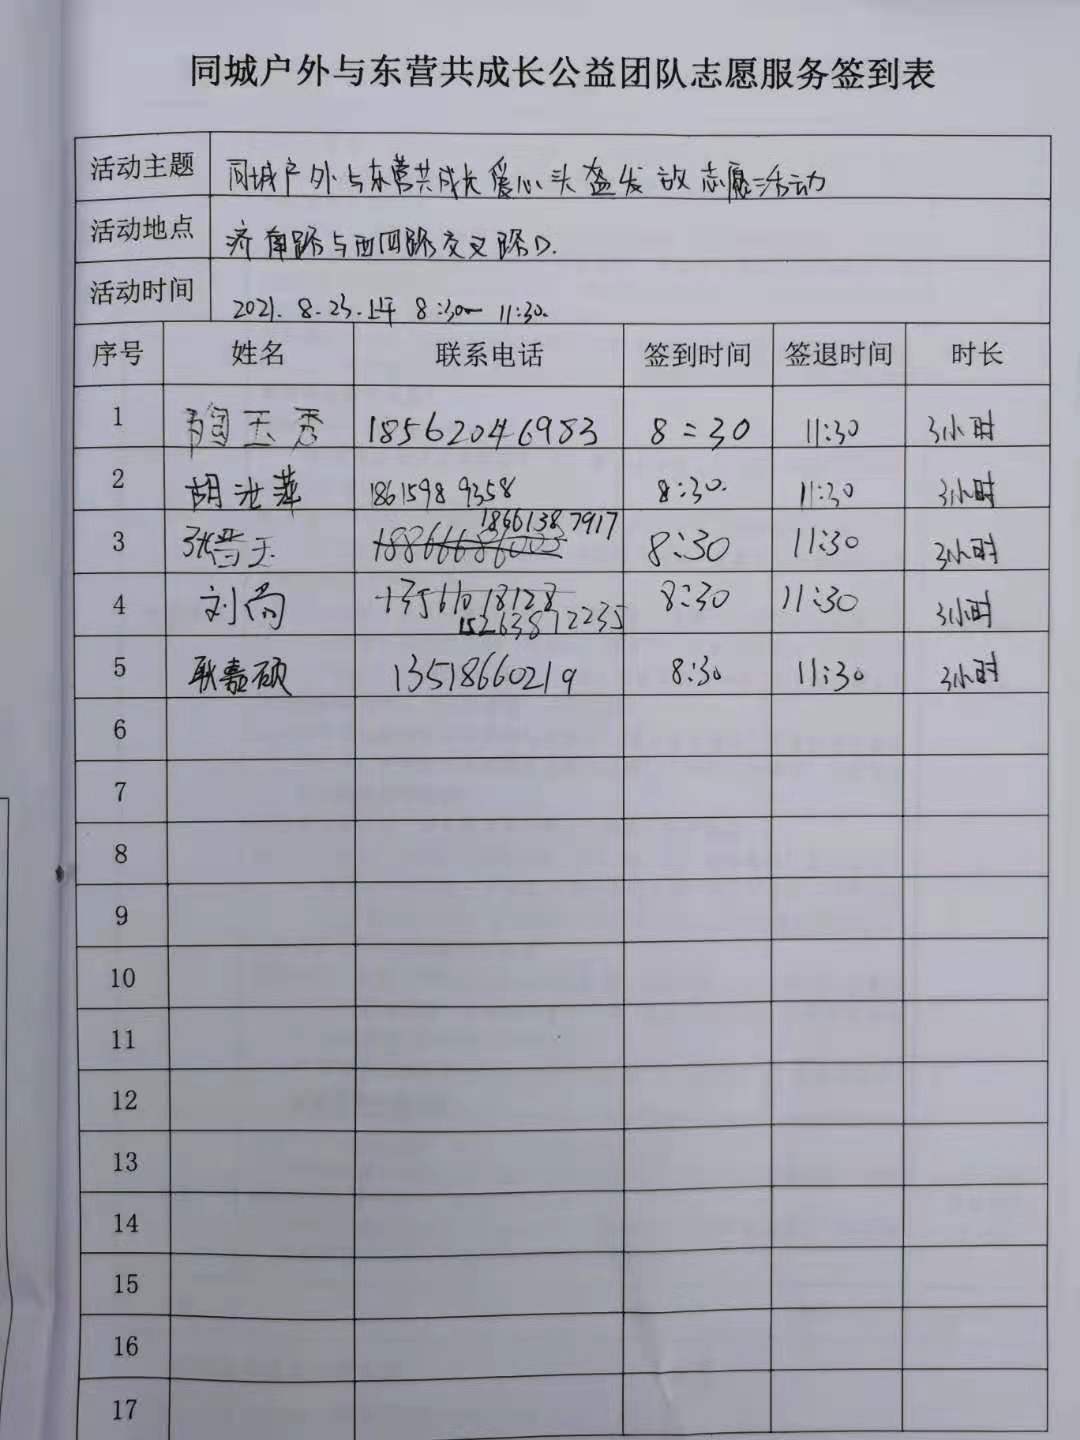 同城户外与东营共成长公益团队志愿服务签到表
活动主题 同城户外与东营共成长爱心头盔发放志愿活动
活动地点 济南路与西四路交叉路口.
活动时间 2021. 8.23.上午 8:30— 11:30.
序号 姓名 联系电话 签到时间 签退时间 时长
1 陶玉秀 18562046983 8:30 11:30 3小时
2 胡 萍 18615989358 8:30. 11:30 3小时
18661387917
3 张普玉 8:30 11:30 3小时
4 刘尚 13561018128 8:30 11:30 3小时
15263872235
5 耿嘉硕 13518660219 8:30 11:30 3小时
6
7
8
9
10
11
12
13
14
15
16
17